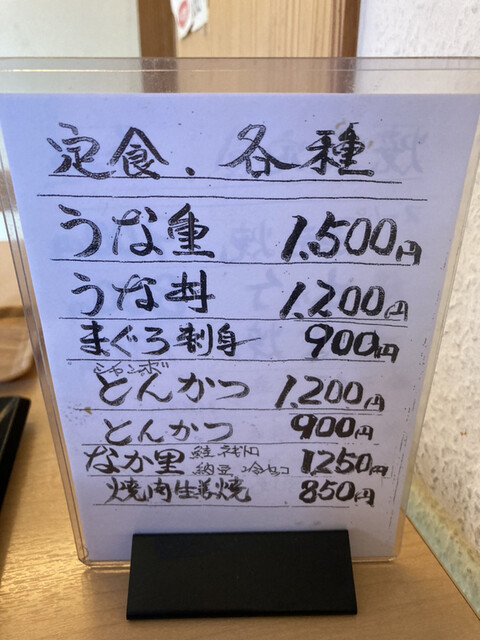 定食、各種
うな重 1,500円
うな丼 1,200円
まぐろ刺身 900円
ジャンボ
とんかつ 1,200円
とんかつ 900円
なか里 鮭 納豆 1250円
焼肉生姜焼 850円